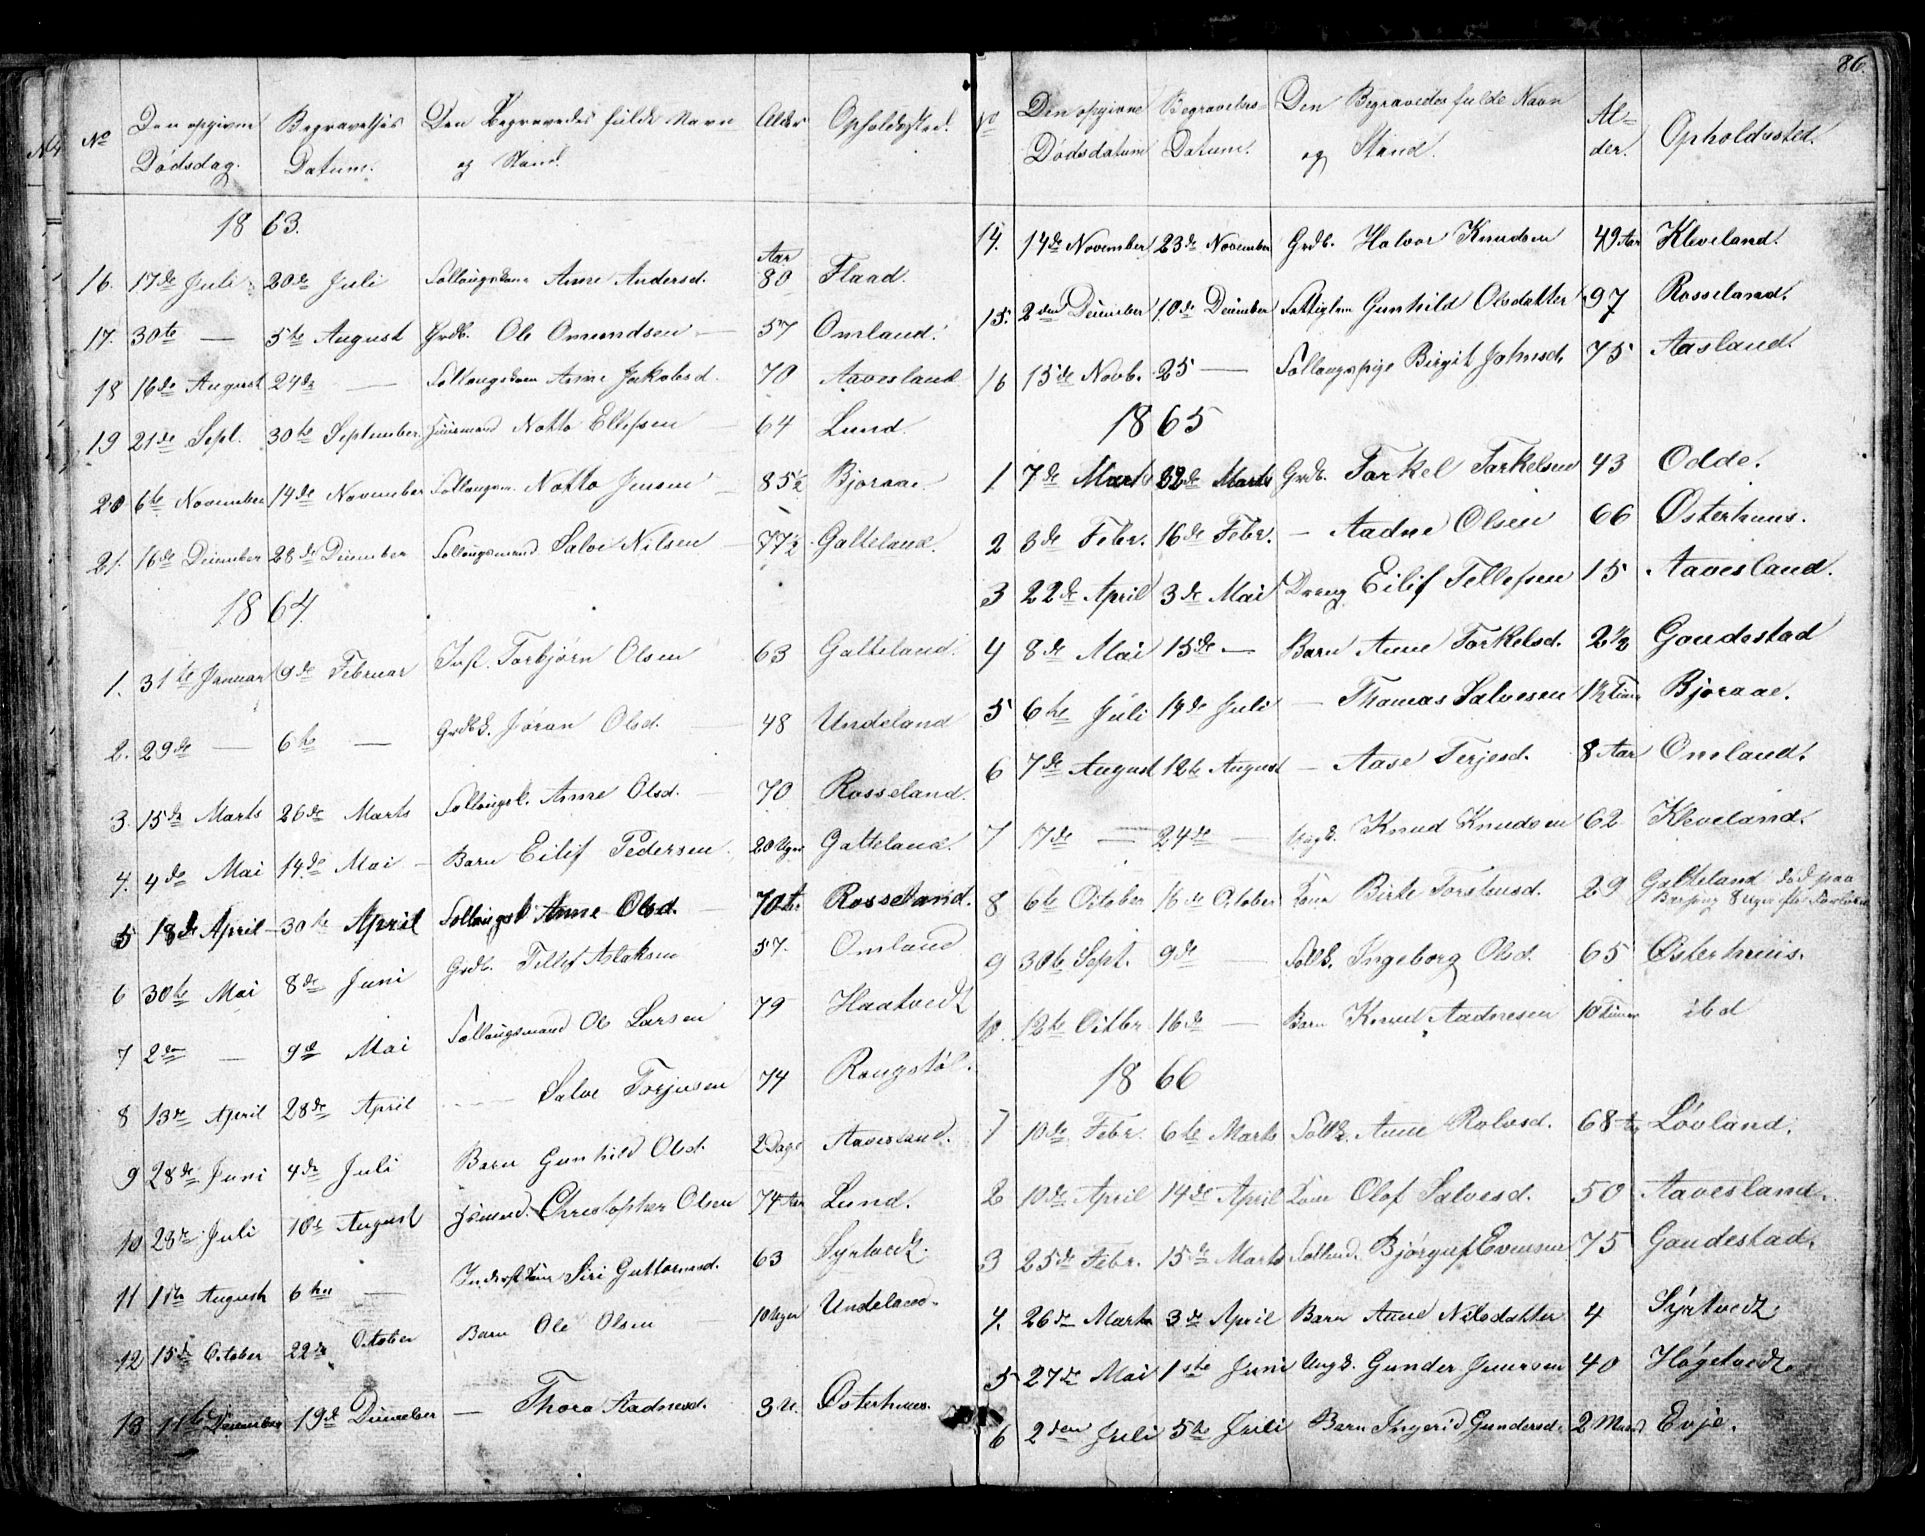 86.
No Den opgivne Dødsdag. Begravelses Datum. Den Begravedes fulde Navn og Stand. Alder Opholdssted.
1863.
16. 17de Juli 20de Juli Følaugskone Anne Andersd. Aar 80 Flaad.
17. 30te — 5te August Grdb. Ole Omundsen — 57 Omland.
18 16de August 24de — Anne Jakobsd. 70 Aavesland
19 21de Sept. 30te September Huusmand Notto Ellefsen — 64 Lund.
20 6te November 14de November Notto Jensen — 85½ Bjoraae.
21. 16de December 28de December Salve Nilsen — 77½ Galteland.
1864.
1. 31te Januar 9de Februar Inds. Torbjørn Olsen 63 Galteland.
2. 29de — 6te — Grdbk. Jøran Olsd. — 48 Undeland
3. 15de Marts 26de Marts Anne Olsd. — 70 Rosseland.
4. 4de Mai 14de Mai — Barn Eilif Pedersen. 20 Uger Galteland.
5 18de April — 30te April Anne Olsd. — 70 Aar Rosseland.
6 30te Mai 8de Juni Grdb. Tellef Aslaksen 57. Omland
7 2den — 9de Mai Ole Larsen 79 Haatvedt
8 13de April 28de April — Salve Torjusen 74 Rougstøl.
9 28de Juni 4de Juli Barn Gunhild Olsd. 2 Dage Aavesland.
10 23de Juli 10de August Christopher Olsen 74 Aar Lund.
11 1ste August 6te — Siri Guttormsd. 63 Syrtvedt.
12 15de October 22de October Barn Ole Olsen — 10 Uger Undeland.
13 11te December 19de December — Thora Aadnesd. 3 U. Osterhuus.
No Den opgivne Dødsdatum Begravelses Datum. Den Begravedes fulde Navn og Stand. Alder. Opholdssted.
14. 14de November 23de November Grdb. Halvor Knudsen 49 Aar Kleveland.
15. 2den December 10de December Gunhild Olsdatter 97 Rosseland.
16 15de Novb. 25 — Birgit Johnsd. 75 Aasland.
1865
1 7de Marts 22de Marts Grdb. Torkel Torkelsen 43 Odde.
2 8de Febr. 16de Febr. — Aadne Olsen 66 Osterhuus.
3 22de April 3de Mai Dreng Eilif Tellefsen 15 Aavesland.
4 8de Mai 15de — Barn Anne Torkelsd. 2½ Gaudestad
5 6te Juli 14de Juli — Thomas Salvesen 1½ Time Bjoraae.
6 7de August 12te August — Aase Terjesd. 8 Aar Omland.
7 17de — 24de — Ungk. Knud Knudsen 62 Kleveland.
8 6te October 16de October Kone Birte Torstensd. 29 Galteland død paa Barseng 8 Uger efter
9 30te Sept. 9de — Ingeborg Olsd. 65 Osterhuus.
10. 12te Octbr. 16de — Barn Knud Aadnesen 10 Timer ibd
1866
1 10de Febr. 6te Marts Anne Rolvsd. 68 Aar Løvland.
2 10de April 14de April Kone Olof Salvesd. 50 Aavesland.
3 25de Febr. 15de Marts Bjørguf Evensen 75 Gaudestad.
4. 26de Marts 3de April Barn Anne Nilsdatter 4 Syrtvedt
5 27de Mai 1ste Juni Ungk. Gunder Juursen 40 Høgetvedt
6 2den Juli 5te Juli Barn Ingerid Gundersd. 2 Maand Evje.